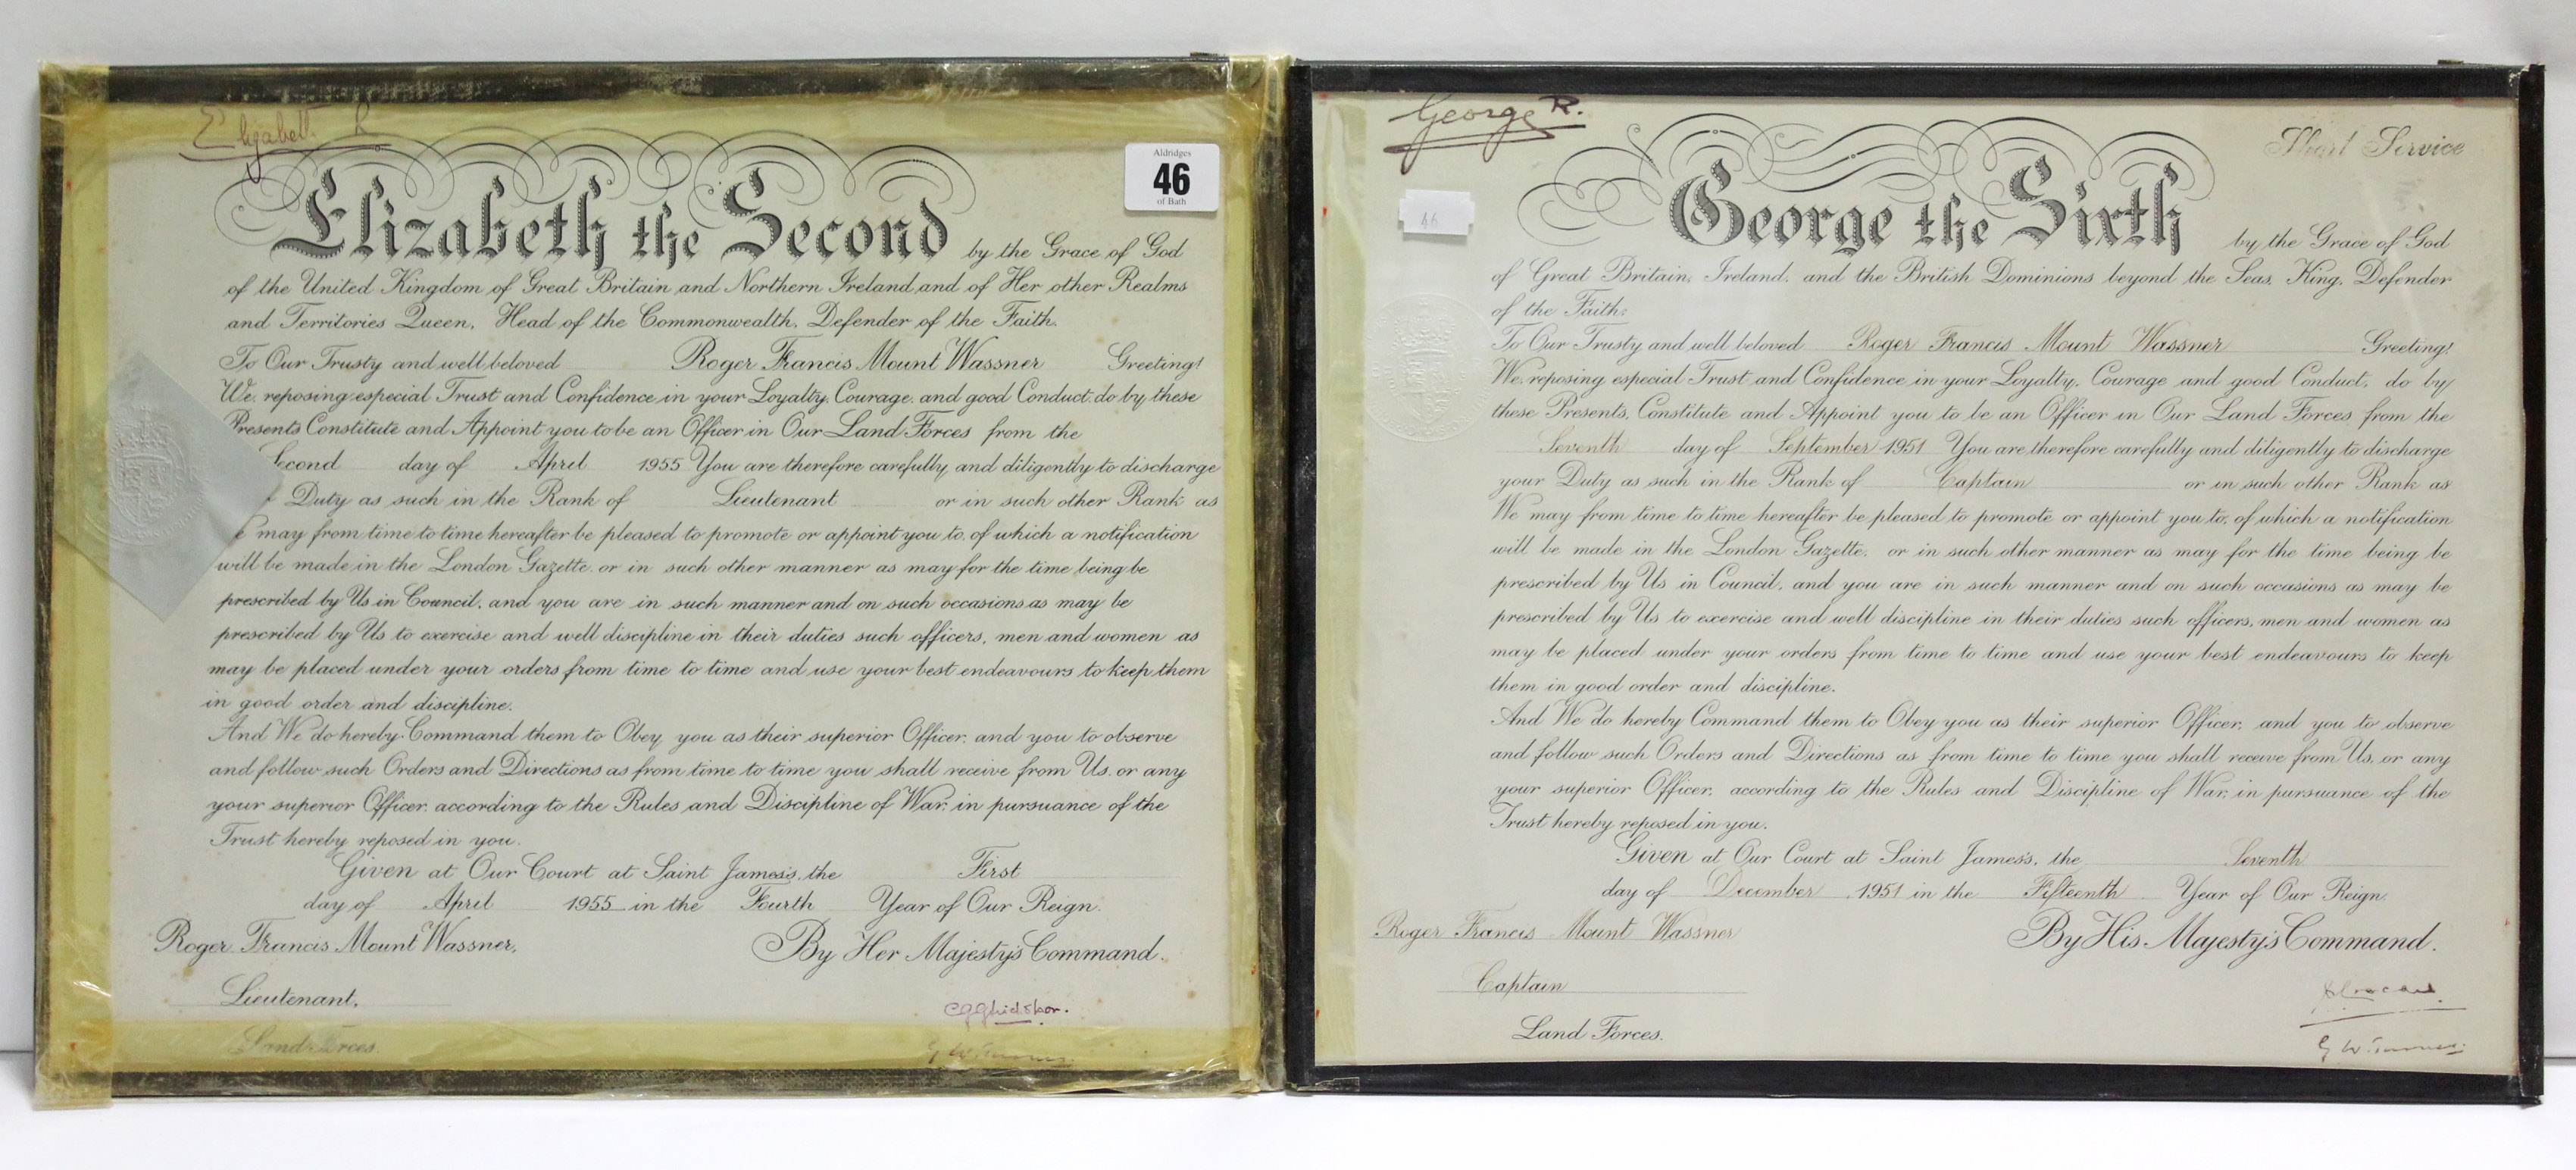 Elizabeth R
Aldridges
46
of Bath
Elizabeth the Second by the Grace of God
of the United Kingdom of Great Britain and Northern Ireland and of Her other Realms
and Territories Queen, Head of the Commonwealth, Defender of the Faith.
To Our Trusty and well beloved Roger Francis Mount Wassner Greeting!
We, reposing especial Trust and Confidence in your Loyalty, Courage, and good Conduct, do by these
Presents Constitute and Appoint you to be an Officer in Our Land Forces from the
Second day of April 1955 You are therefore carefully and diligently to discharge
Duty as such in the Rank of Lieutenant or in such other Rank as
may from time to time hereafter be pleased to promote or appoint you to, of which a notification
will be made in the London Gazette, or in such other manner as may for the time being be
prescribed by Us in Council, and you are in such manner and on such occasions as may be
prescribed by Us to exercise and well discipline in their duties such officers, men and women as
may be placed under your orders from time to time and use your best endeavours to keep them
in good order and discipline.
And We do hereby Command them to Obey you as their superior Officer, and you to observe
and follow such Orders and Directions as from time to time you shall receive from Us, or any
your superior Officer, according to the Rules and Discipline of War, in pursuance of the
Trust hereby reposed in you.
Given at Our Court at Saint James's, the First
day of April 1955 in the Fourth Year of Our Reign.
Roger Francis Mount Wassner, By Her Majesty's Command.
Lieutenant,
Land Forces.
George R.
Short Service
46
George the Sixth by the Grace of God
of Great Britain, Ireland, and the British Dominions beyond the Seas, King, Defender
of the Faith:
To Our Trusty and well beloved Roger Francis Mount Wassner Greeting!
We, reposing especial Trust and Confidence in your Loyalty, Courage and good Conduct, do by
these Presents, Constitute and Appoint you to be an Officer in Our Land Forces from the
Seventh day of September 1951 You are therefore carefully and diligently to discharge
your Duty as such in the Rank of Captain or in such other Rank as
We may from time to time hereafter be pleased to promote or appoint you to, of which a notification
will be made in the London Gazette, or in such other manner as may for the time being be
prescribed by Us in Council, and you are in such manner and on such occasions as may be
prescribed by Us to exercise and well discipline in their duties such officers, men and women as
may be placed under your orders from time to time and use your best endeavours to keep
them in good order and discipline.
And We do hereby Command them to Obey you as their superior Officer, and you to observe
and follow such Orders and Directions as from time to time you shall receive from Us, or any
your superior Officer, according to the Rules and Discipline of War, in pursuance of the
Trust hereby reposed in you.
Given at Our Court at Saint James's, the Seventh
day of December 1951 in the Fifteenth Year of Our Reign.
Roger Francis Mount Wassner By His Majesty's Command.
Captain
Land Forces.